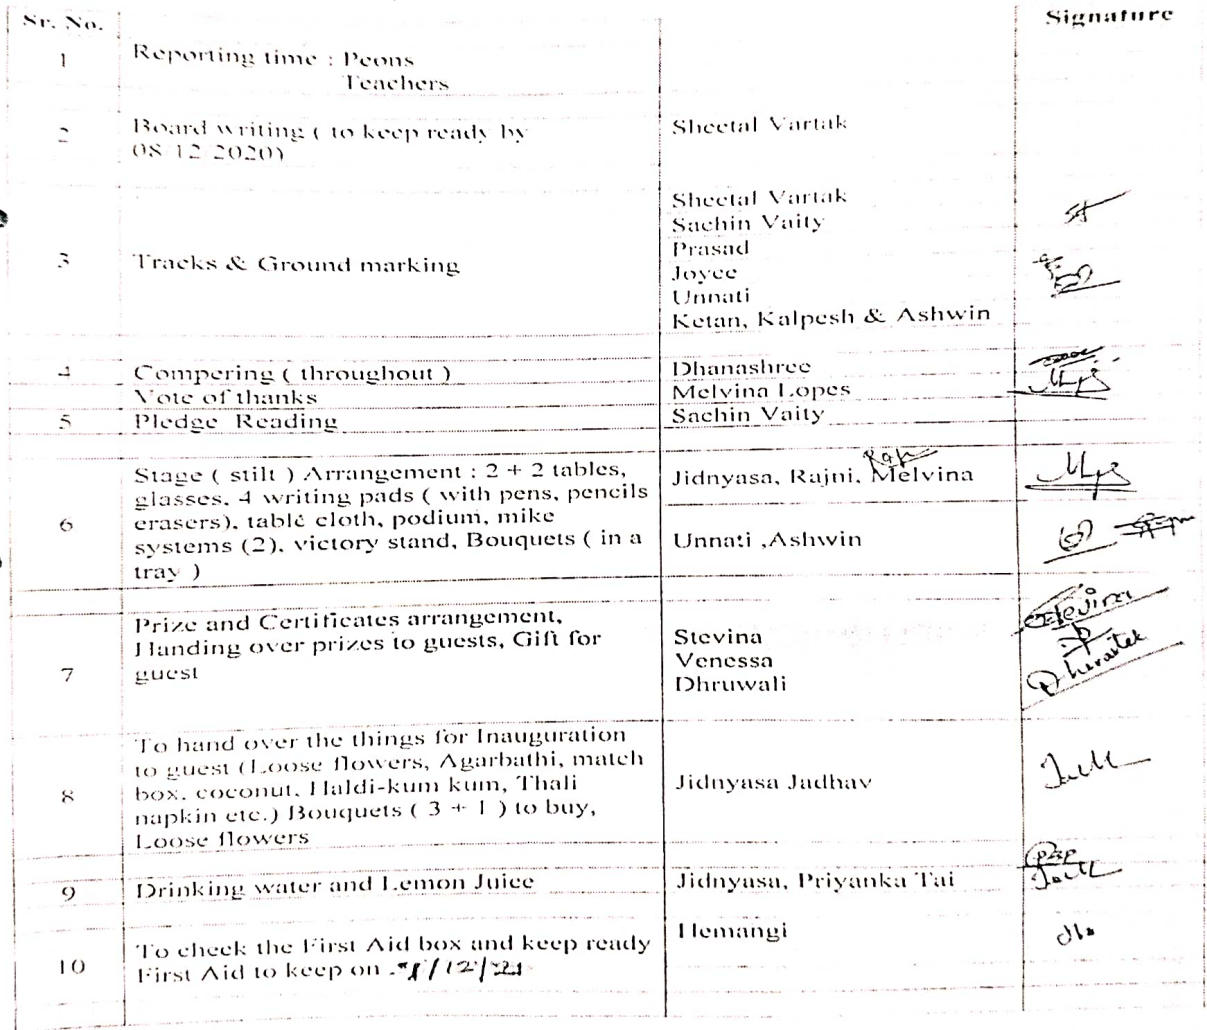 Sr. No.
Signature
1
Reporting time : Peons
Teachers
2
Board writing ( to keep ready by
08 12 2020)
Sheetal Vartak
3
Tracks & Ground marking
Sheetal Vartak
Sachin Vaity
Prasad
Joyce
Unnati
Ketan, Kalpesh & Ashwin
4
Compering ( throughout )
Vote of thanks
Dhanashree
Melvina Lopes
5
Pledge Reading
Sachin Vaity
6
Stage ( stilt ) Arrangement : 2 + 2 tables,
glasses, 4 writing pads ( with pens, pencils
erasers), table cloth, podium, mike
systems (2), victory stand, Bouquets ( in a
tray )
Jidnyasa, Rajni, Melvina
Unnati ,Ashwin
7
Prize and Certificates arrangement,
Handing over prizes to guests, Gift for
guest
Stevina
Venessa
Dhruwali
Stevina
8
To hand over the things for Inauguration
to guest (Loose flowers, Agarbathi, match
box, coconut, Haldi-kum kum, Thali
napkin etc.) Bouquets ( 3 + 1 ) to buy,
Loose flowers
Jidnyasa Jadhav
9
Drinking water and Lemon Juice
Jidnyasa, Priyanka Tai
10
To check the First Aid box and keep ready
First Aid to keep on /12/21
Hemangi